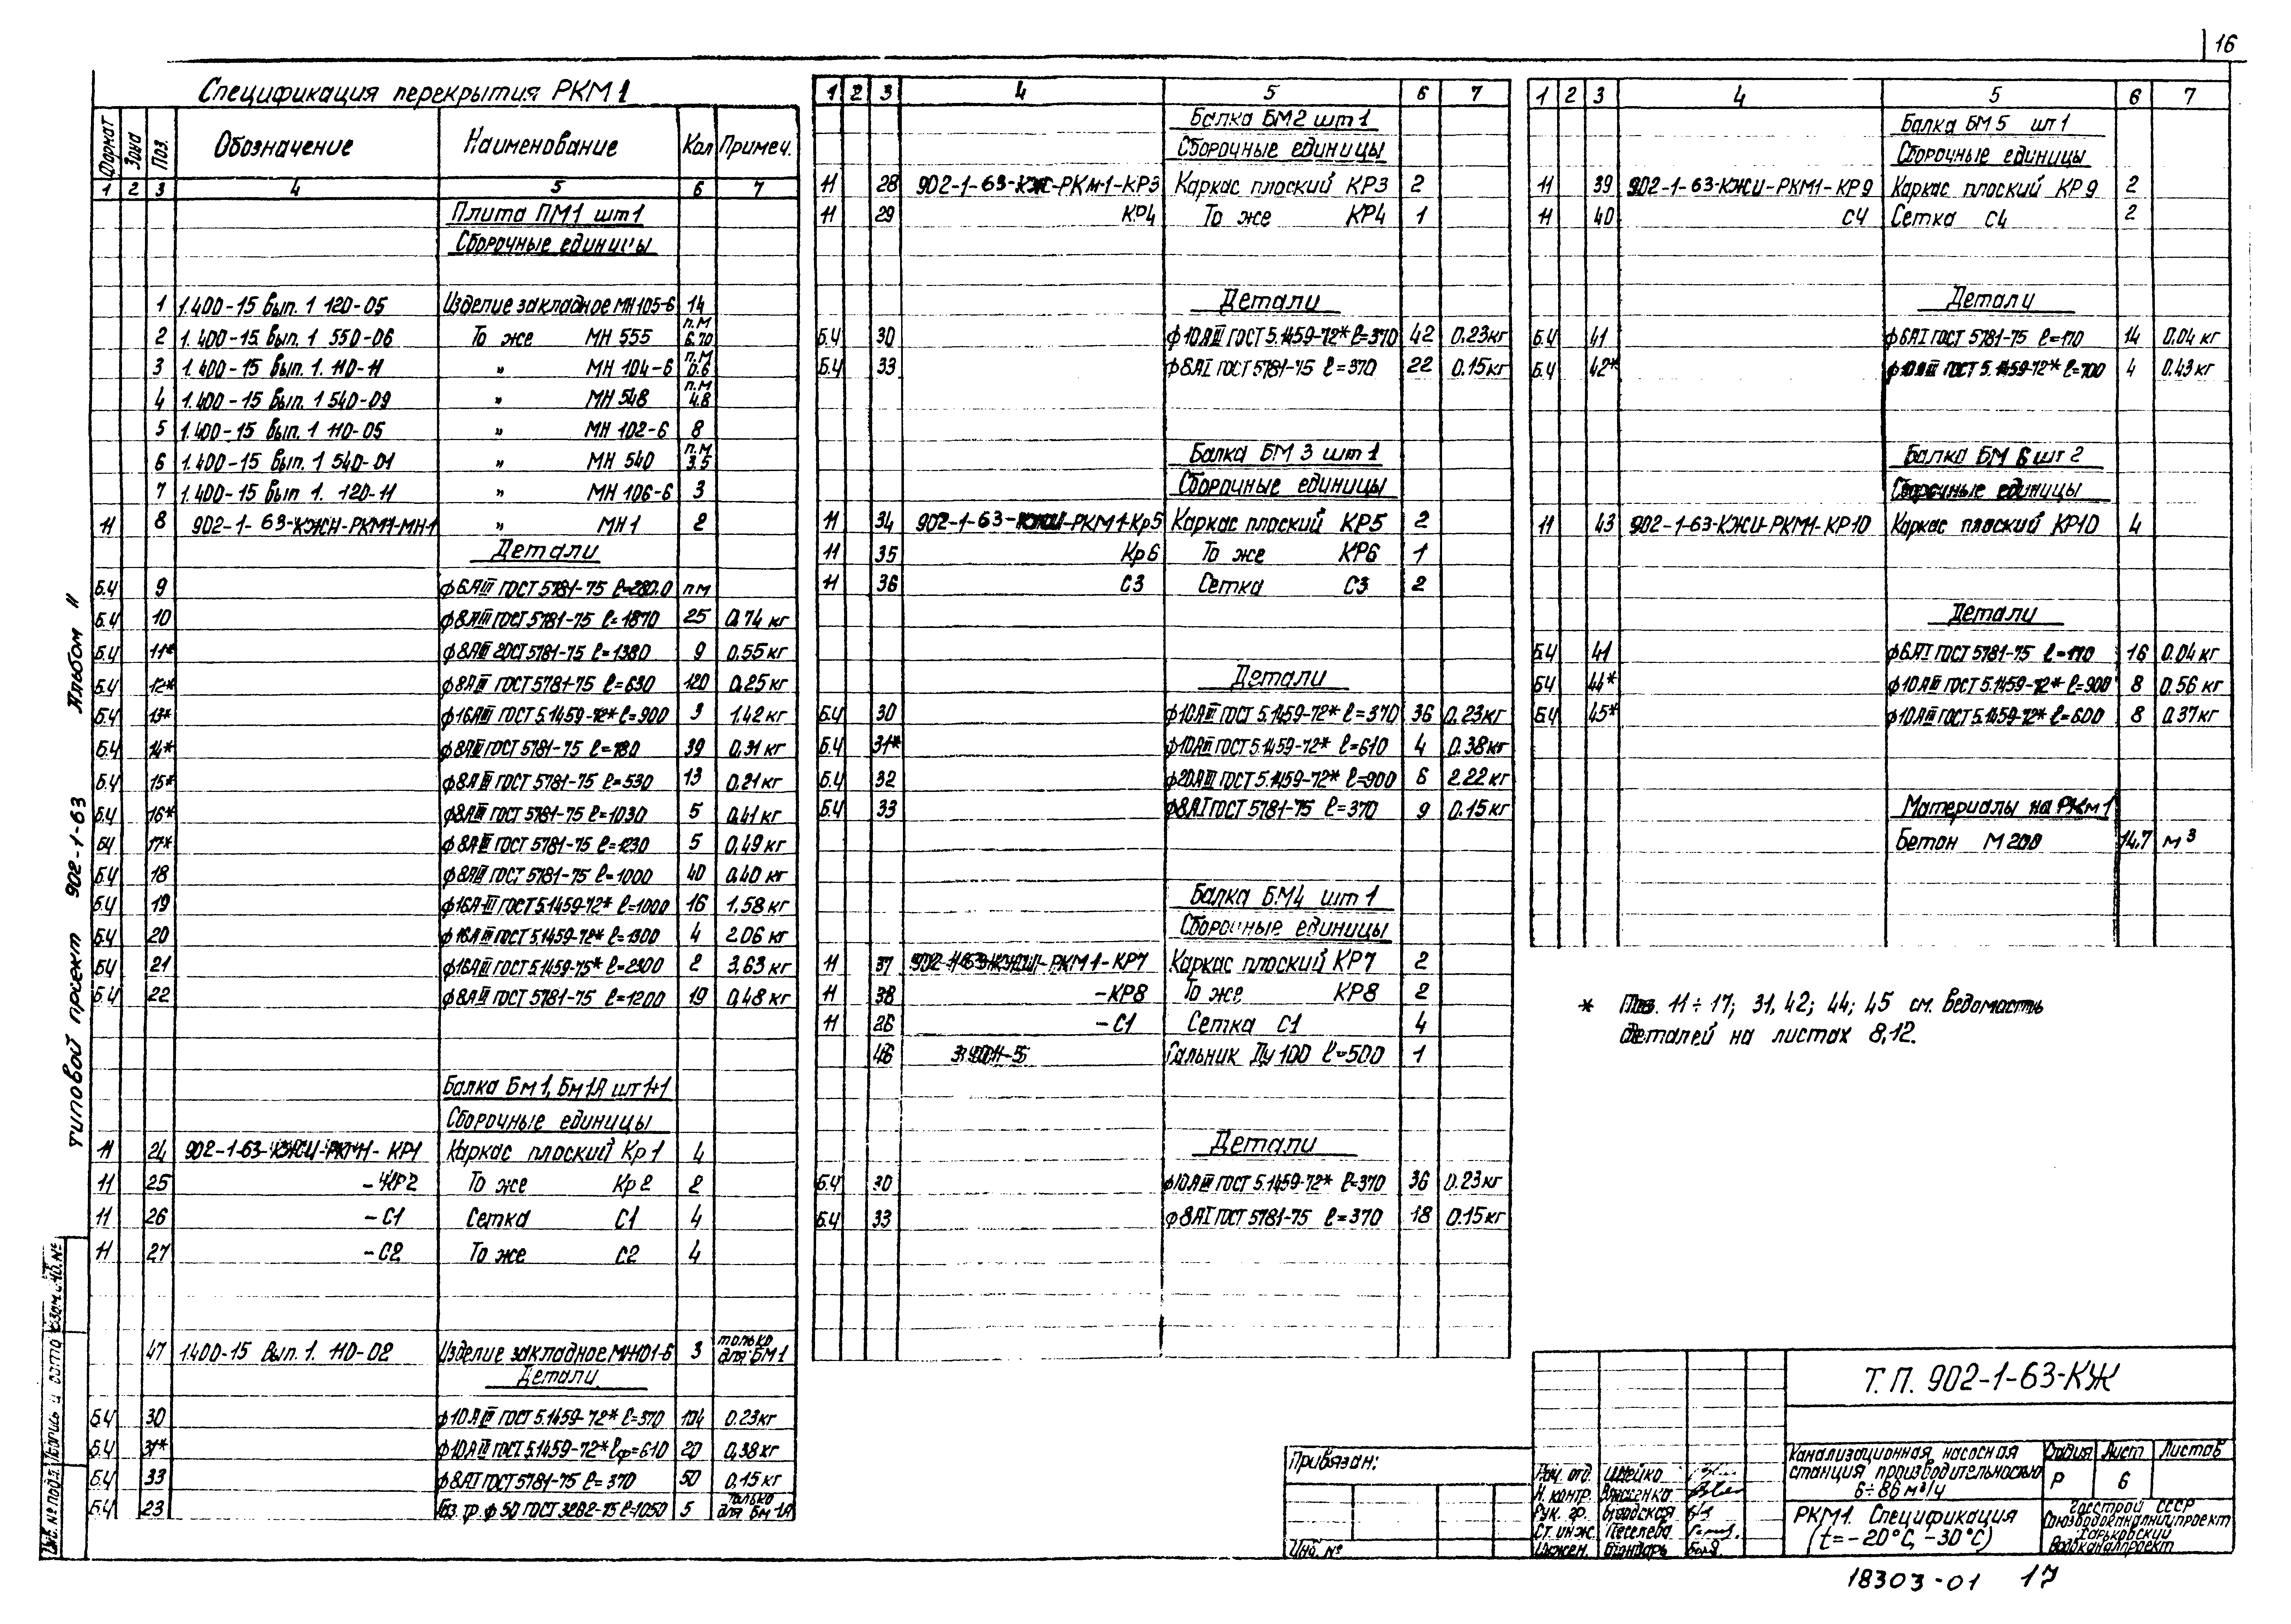 16
Спецификация перекрытия РКМ1
Формат Зона Поз. Обозначение Наименование Кол Примеч.
1 2 3 4 5 6 7
Плита ПМ1 шт1
Сборочные единицы
1 1.400-15 Вып. 1 120-05 Изделие закладное МН105-6 14
2 1.400-15 Вып. 1 550-06 То же МН 555 п.м 6.70
3 1.400-15 Вып. 1. 110-11 " МН 104-6 п.м 0.6
4 1.400-15 Вып. 1 540-09 " МН 548 п.м 4.8
5 1.400-15 Вып. 1 110-05 " МН 102-6 8
6 1.400-15 Вып. 1 540-01 " МН 540 п.м 3.5
7 1.400-15 Вып 1. 120-11 " МН 106-6 3
11 8 902-1-63-КЖИ-РКМ1-МН1 " МН1 2
Детали
Б.Ч 9 ф6АIII ГОСТ 5781-75 ℓ=280.0 пм
Б.Ч 10 ф8АIII ГОСТ 5781-75 ℓ=1870 25 0.74 кг
Б.Ч 11* ф8АIII ГОСТ 5781-75 ℓ=1380 9 0.55 кг
Б.Ч 12* ф8АIII ГОСТ 5781-75 ℓ=630 120 0.25 кг
Б.Ч 13* ф16АIII ГОСТ 5.1459-72* ℓ=900 3 1.42 кг
Б.Ч 14* ф8АIII ГОСТ 5781-75 ℓ=780 39 0.31 кг
Б.Ч 15* ф8АIII ГОСТ 5781-75 ℓ=530 13 0.21 кг
Б.Ч 16* ф8АIII ГОСТ 5781-75 ℓ=1030 5 0.41 кг
БЧ 17* ф8АIII ГОСТ 5781-75 ℓ=1230 5 0.49 кг
Б.Ч 18 ф8АIII ГОСТ 5781-75 ℓ=1000 40 0.40 кг
Б.Ч 19 ф16А-III ГОСТ 5.1459-72* ℓ=1000 16 1.58 кг
Б.Ч 20 ф16АIII ГОСТ 5.1459-72* ℓ=1300 4 2.06 кг
БЧ 21 ф16АIII ГОСТ 5.1459-75* ℓ=2300 2 3.63 кг
Б.Ч 22 ф8АIII ГОСТ 5781-75 ℓ=1200 19 0.48 кг
Балка Бм1, Бм1А шт 1+1
Сборочные единицы
11 24 902-1-63-КЖИ-РКМ1- КР1 Каркас плоский Кр1 4
11 25 -КР2 То же Кр2 2
11 26 -С1 Сетка С1 4
11 27 -С2 То же С2 4
47 1.400-15 Вып. 1. 110-02 Изделие закладное МН101-6 3 только для БМ1
Детали
Б.Ч 30 ф10АIII ГОСТ 5.1459-72* ℓ=370 104 0.23кг
Б.Ч 31* ф10АIII ГОСТ 5.1459-72* ℓф=610 20 0.38 кг
Б.Ч 33 ф8АI ГОСТ 5781-75 ℓ= 370 50 0.15 кг
Б.Ч 23 Газ. тр. ф50 ГОСТ 3262-75 ℓ=1050 5 только для Бм-1А
1 2 3 4 5 6 7
Балка БМ2 шт1
Сборочные единицы
11 28 902-1-63-КЖИ-РКМ-1-КР3 Каркас плоский КР3 2
11 29 КР4 То же КР4 1
Детали
Б.Ч 30 ф10АIII ГОСТ 5.1459-72* ℓ=370 42 0.23кг
Б.Ч 33 ф8АI ГОСТ 5781-75 ℓ=370 22 0.15кг
Балка БМ 3 шт1
Сборочные единицы
11 34 902-1-63-КЖИ-РКМ1-Кр5 Каркас плоский КР5 2
11 35 Кр6 То же КР6 1
11 36 С3 Сетка С3 2
Детали
Б.Ч 30 ф10АIII ГОСТ 5.1459-72* ℓ=370 36 0.23кг
Б.Ч 31* ф10АIII ГОСТ 5.1459-72* ℓ=610 4 0.38кг
Б.Ч 32 ф20АIII ГОСТ 5.1459-72* ℓ=900 6 2.22 кг
Б.Ч 33 ф8АI ГОСТ 5781-75 ℓ=370 9 0.15кг
Балка БМ4 шт1
Сборочные единицы
11 37 902-1-63-КЖИ-РКМ1-КР7 Каркас плоский КР7 2
11 38 -КР8 То же КР8 2
11 26 -С1 Сетка С1 4
46 Сальник Ду 100 ℓ=500 1
Детали
Б.Ч 30 ф10АIII ГОСТ 5.1459-72* ℓ=370 36 0.23кг
Б.Ч 33 ф8АI ГОСТ 5781-75 ℓ=370 18 0.15кг
1 2 3 4 5 6 7
Балка БМ5 шт1
Сборочные единицы
11 39 902-1-63-КЖИ-РКМ1-КР9 Каркас плоский КР9 2
11 40 С4 Сетка С4 2
Детали
Б.Ч 41 ф6АI ГОСТ 5781-75 ℓ=170 14 0.04 кг
Б.Ч 42* ф10АIII ГОСТ 5.1459-72* ℓ=700 4 0.43 кг
Балка БМ 6 шт 2
Сборочные единицы
11 43 902-1-63-КЖИ-РКМ1-КР10 Каркас плоский КР10 4
Детали
Б.Ч 41 ф6АI ГОСТ 5781-75 ℓ=170 16 0.04 кг
БЧ 44* ф10АIII ГОСТ 5.1459-72* ℓ=900 8 0.56 кг
Б.Ч 45* ф10АIII ГОСТ 5.1459-72* ℓ=600 8 0.37кг
Материалы на РКм1
Бетон М200 14.7 м³
* Поз. 11÷17; 31, 42; 44; 45 см. Ведомость
деталей на листах 8,12.
типовой проект 902-1-63 Альбом II
Инв. № подл. Подпись и дата Взам. инв. №
Привязан:
Инв. №
Т.П. 902-1-63-КЖ
Канализационная насосная
станция производительностью
6÷86 м³/ч
Стадия Лист Листов
Р 6
РКМ1. Спецификация
(t=-20°С, -30°С)
Госстрой СССР
Союзводоканалниипроект
Харьковский
Водоканалпроект
Нач. отд. Шейко
Н. контр. Власенко
Рук. гр.
Ст. инж.
Инжен. Бондарь
18303-01 17